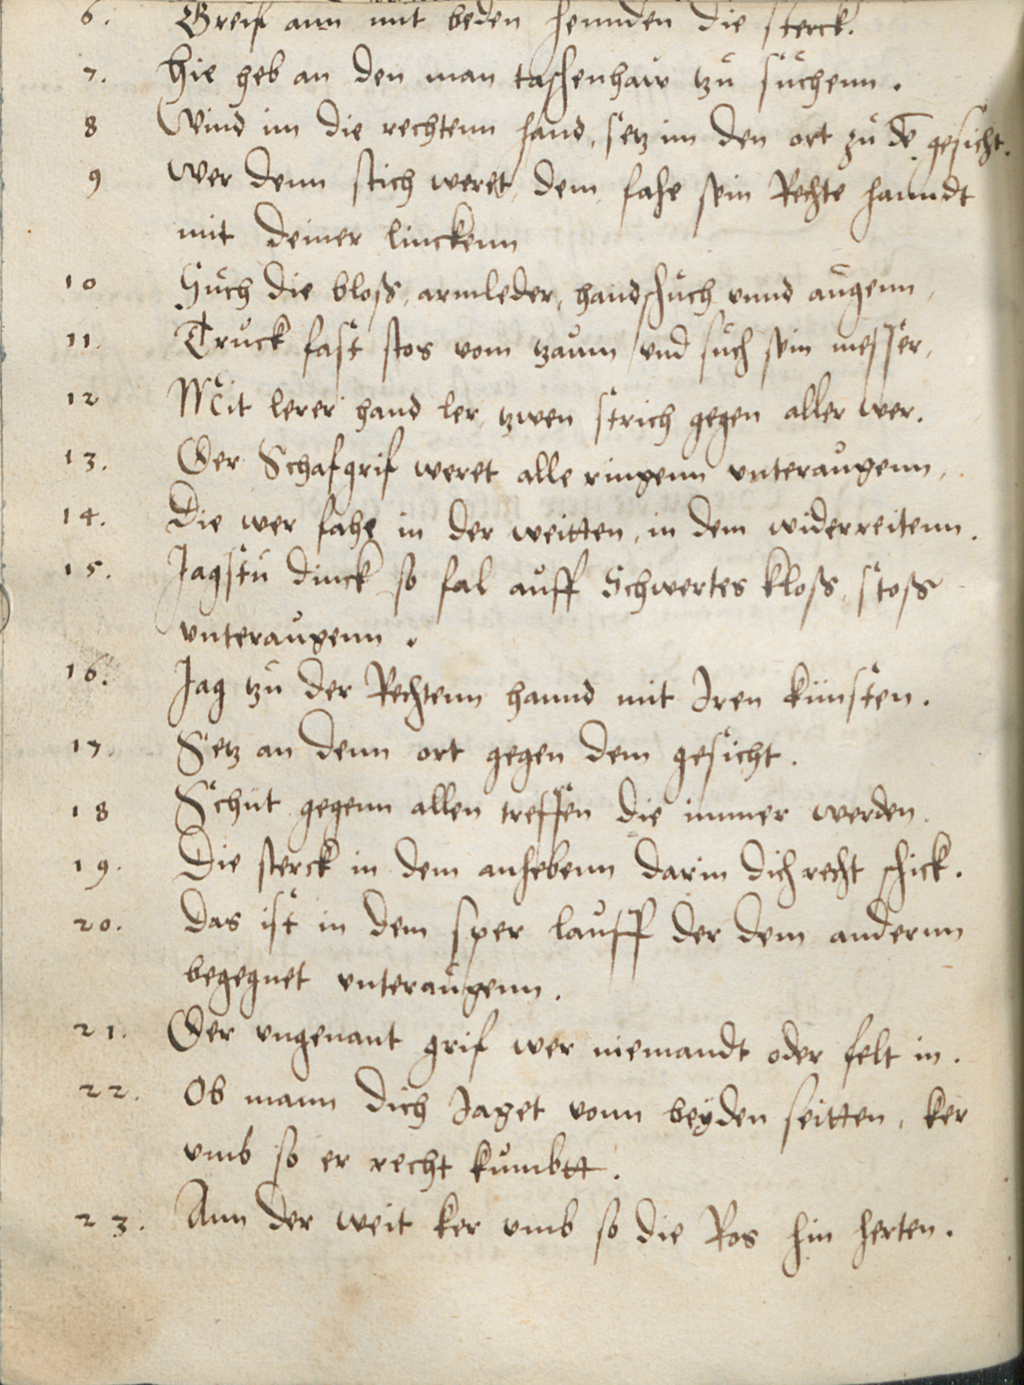 6. Greif ann mit beden hennden die sterck.
7. Hie heb an den man taschenhaw tzu suchenn.
8 Wind im die rechtenn hand, setz im den ort zu dē gesicht.
9 Wer denn stich weret dem fahe sein Rechte hanndt
mit deiner linckenn
10 Such die bloß, armleder, handschuch vnnd augenn,
11. Truck fast stos vom tzaum vnd such sein messer,
12 Mit lerer hand ler tzwen strich gegen aller wer.
13. Der Schafgrif weret alle ringenn vnteraugenn,
14. Die wer fahe in der weitten, in dem widerreitenn.
15. Jagstu dinck so fal auff Schwertes kloß, stoß
vnteraugenn.
16. Jag tzu der Rechtenn hannd mit Iren künsten.
17. Setz an denn ort gegen dem gesicht.
18 Schüt gegenn allen treffen die immer werden.
19. Die sterck in dem anhebenn darin dich recht schick.
20. Das ist in dem sper lauff der dem andernn
begegnet vnteraugenn.
21. Der vngenant grif wer niemandt oder felt in.
22. Ob mann dich Jaget vonn beyden seitten, ker
vmb so er recht kumbtt.
23. Ann der weit ker vmb so die Ros hin herten.